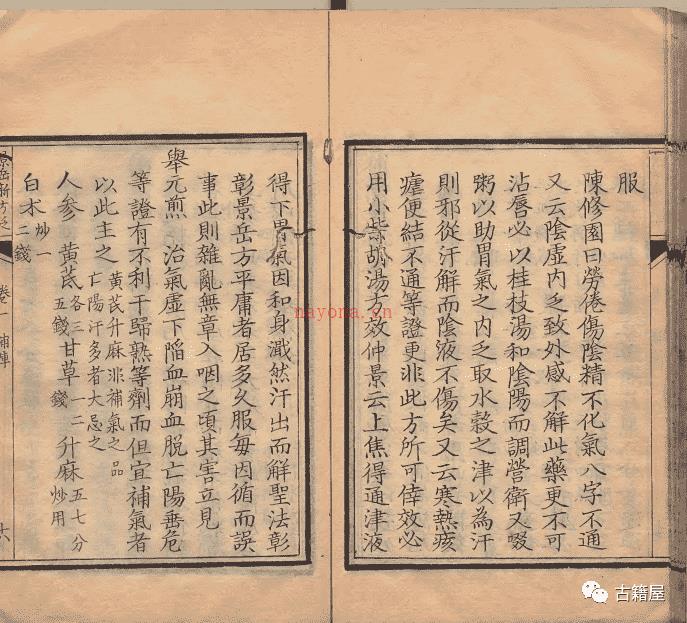 服
陳修園曰勞倦傷陰精不化氣八字不通
又云陰虛内乏致外感不解此藥更不可
沾唇必以桂枝湯和陰陽而調營衛又啜
粥以助胃氣之内乏取水穀之津以為汗
則邪從汗解而陰液不傷矣又云寒熱痎
瘧便結不通等證更非此方所可倖效必
用小柴胡湯方效仲景云上焦得通津液
得下胃氣因和身濈然汗出而解聖法彰
彰景岳方平庸者居多久服每因循而誤
事此則雜亂無章入咽之頃其害立見
舉元煎　治氣虛下陷血崩血脱亡陽垂危
等證有不利于歸熟等劑而但宜補氣者
以此主之黃芪升麻非補氣之品
亡陽汗多者大忌之
人參　黃芪各三五錢甘草一二錢升麻五七分炒用
白朮炒一二錢
景岳新方砭
卷一　補陣
nayona.cn
古籍屋